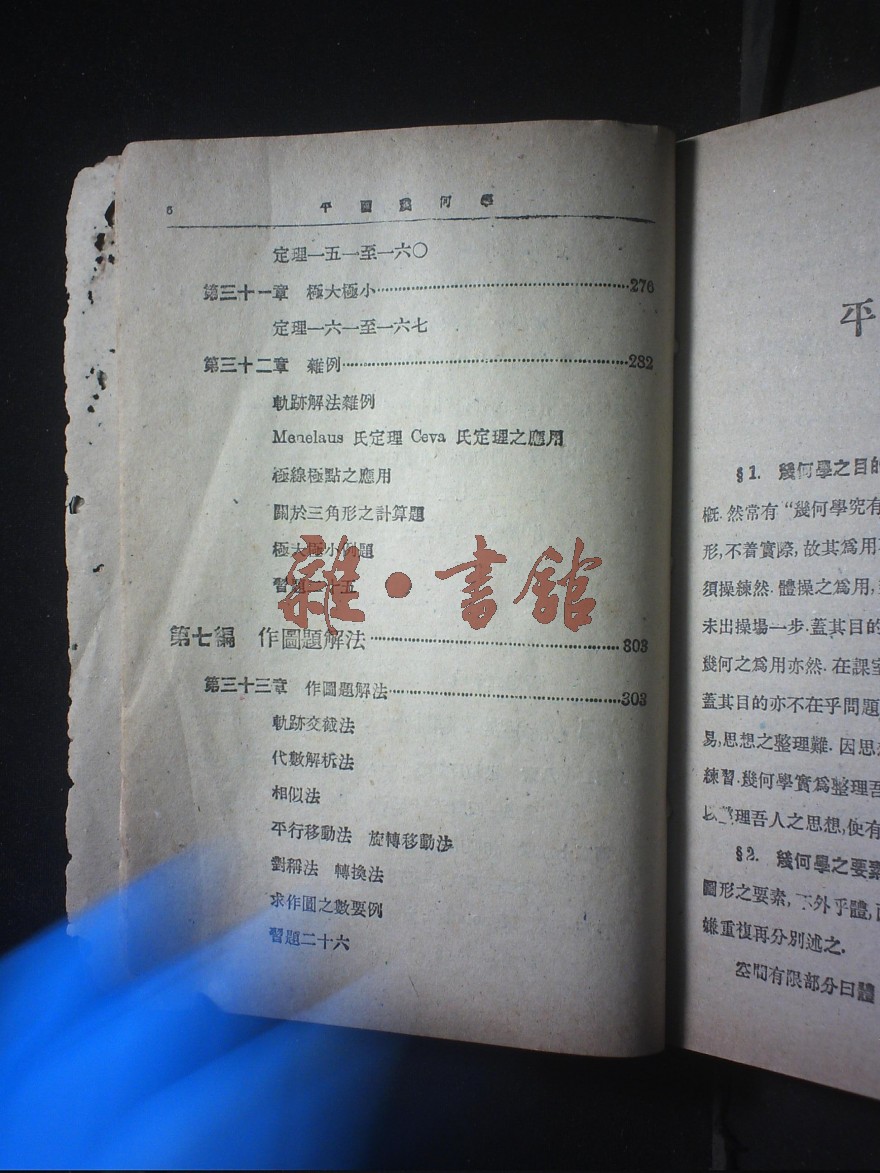 5 平面幾何學
定理一五一至一六〇
第三十一章 極大極小……276
定理一六一至一六七
第三十二章 雜例……282
軌跡解法雜例
Menelaus 氏定理 Ceva 氏定理之應用
極線極點之應用
關於三角形之計算題
極大極小例題
習題二十五
雜·書館
第七編 作圖題解法……303
第三十三章 作圖題解法……303
軌跡交截法
代數解析法
相似法
平行移動法 旋轉移動法
對稱法 轉換法
求作圓之數要例
習題二十六
平
§1. 幾何學之目的
概.然常有“幾何學究有
形,不着實際,故其爲用
須操練然.體操之爲用,
未出操場一步.蓋其目的
幾何之爲用亦然.在課室
蓋其目的亦不在乎問題
易,思想之整理難.因思
練習.幾何學實爲整理吾
以整理吾人之思想,使有
§2. 幾何學之要素
圖形之要素,不外乎體,
嫌重複再分別述之.
空間有限部分曰體